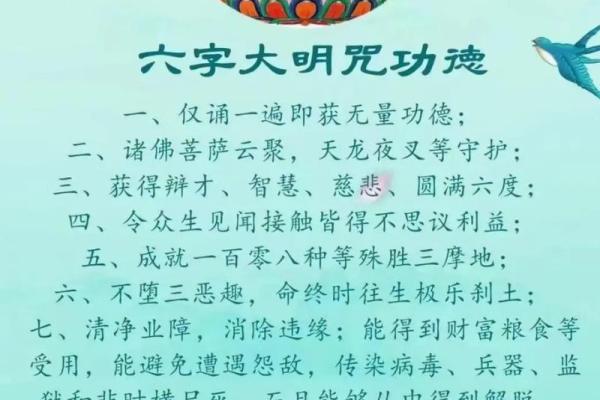 六字大明咒功德
一、仅诵一遍即获无量功德；
二、诸佛菩萨云聚，天龙夜叉等守护；
三、获得辩才、智慧、慈悲、圆满六度；
四、令众生见闻接触皆得不思议利益；
五、成就一百零八种等殊胜三摩地；
六、不堕三恶趣，命终时往生极乐刹土；
七、清净业障，消除违缘；能得到财富粮食等
受用，能避免遭遇怨敌，传染病毒、兵器、监